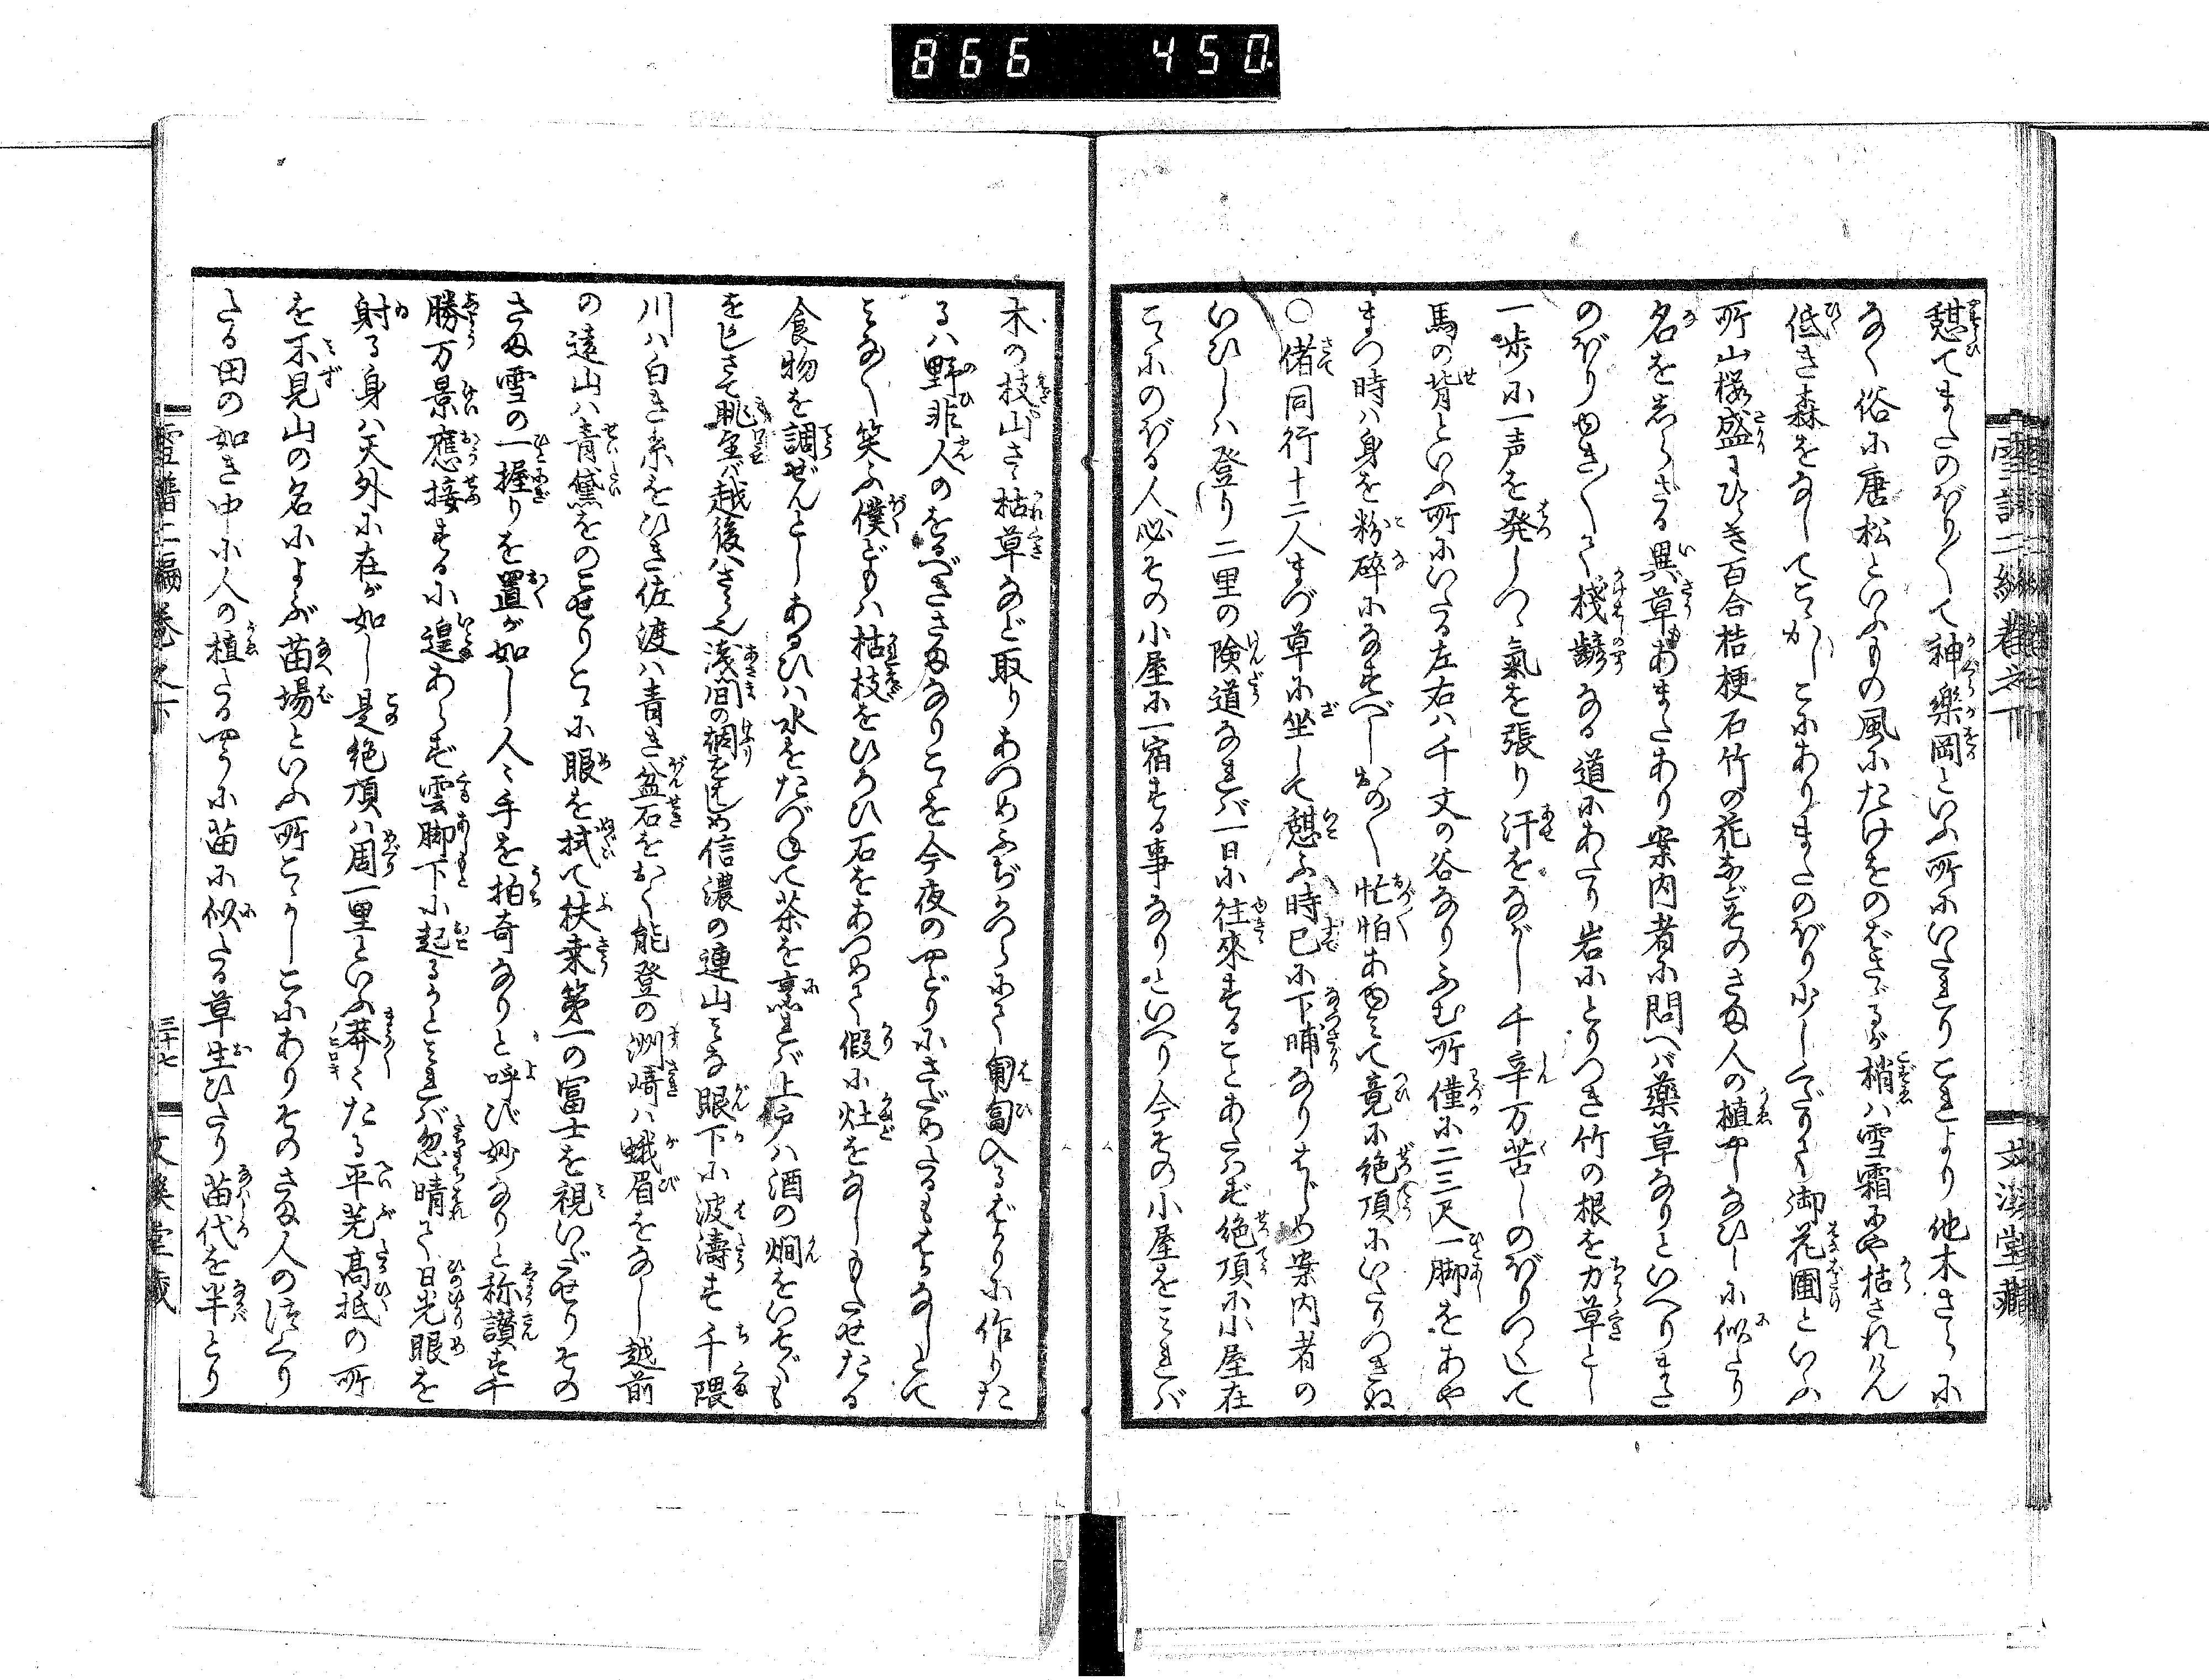 866 450
憩てまたのぼり〳〵て神樂岡といふ所にいたれりこれより他木さらに
なく俗に唐松といふもの風にたけをのばさゞるが梢は雪霜にや枯されけん
低き森をなしてこゝかしこにありまたのぼり少しくだりて御花圃といふ
所山桜盛にひらき百合桔梗石竹の花などそのさま人の植やしなひしに似たり
名をしらざる異草もあまたあり案内者に問へば薬草なりといへりまた
のぼりゆき〳〵て桟齴なる道にあたり岩にとりつき竹の根を力草とし
一歩に一声を発しつゝ氣を張り汗をながし千辛万苦しのぼりつくして
馬の背といふ所にいたる左右は千丈の谷なりふむ所僅に二三尺一脚をあや
まつ時は身を粉碎になすべしおの〳〵忙怕あゆみて竟に絶頂にいたりつきぬ
○偖同行十二人まづ草に坐して憩ふ時已に下晡なりはじめ案内者の
いひしは登り二里の険道なれば一日に往來することあたはず絶頂に小屋在
こゝにのぼる人必その小屋に一宿する事なりといへり今その小屋をみれば
木の枝山さゝ枯草など取りあつめふぢかつらにて匍匐入るばかりに作りた
るは野非人のをるべきさまなりこゝを今夜のやどりにさだめたるもはかなしとて
みな〳〵笑ふ僕どもは枯枝をひろひ石をあつめて假に灶をなしもたせたる
食物を調ぜんとしあるひは水をたづねて茶を煮れば上戸は酒の燗をいそぐも
をかしさて眺望ば越後はさら也浅間の烟をはじめ信濃の連山みな眼下に波濤す千隈
川は白き糸をひき佐渡は青き盆石をおく能登の洲崎は蛾眉をなし越前
の遠山は青黛をのこせりこゝに眼を拭て扶桒第一の冨士を視いだせりその
さま雪の一握りを置が如し人々手を拍奇なりと呼び妙なりと称讃す千
勝万景應接するに遑あらず雲脚下に起るかとみれば忽晴て日光眼を
射る身は天外に在が如し是絶頂は周一里といふ莽々たる平蕪高抵の所
を不見山の名によぶ苗場といふ所こゝかしこにありそのさま人のつくり
たる田の如き中に人の植たるやうに苗に似たる草生ひたり苗代を半とり
雪譜二編巻之下
三十七
文溪堂藏
雪譜二編巻之下
文溪堂藏